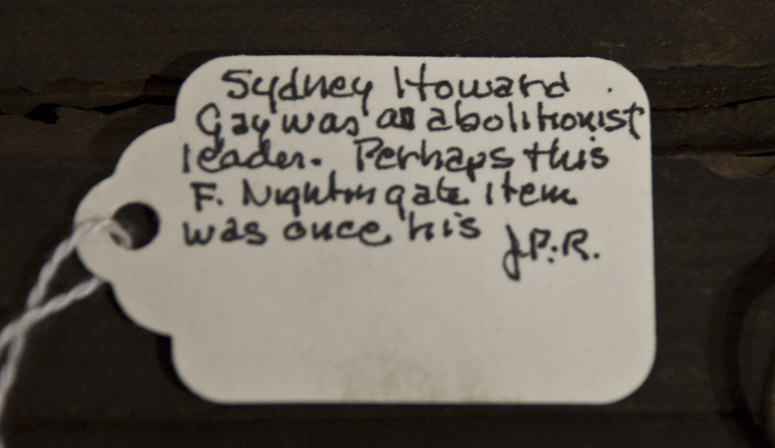 Sydney Howard
Gay was an abolitionist
leader. Perhaps this
F. Nightingale item
was once his
J.P.R.